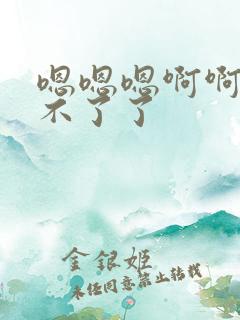 嗯嗯嗯啊啊
不了了
金银姬
未经同意禁止转载